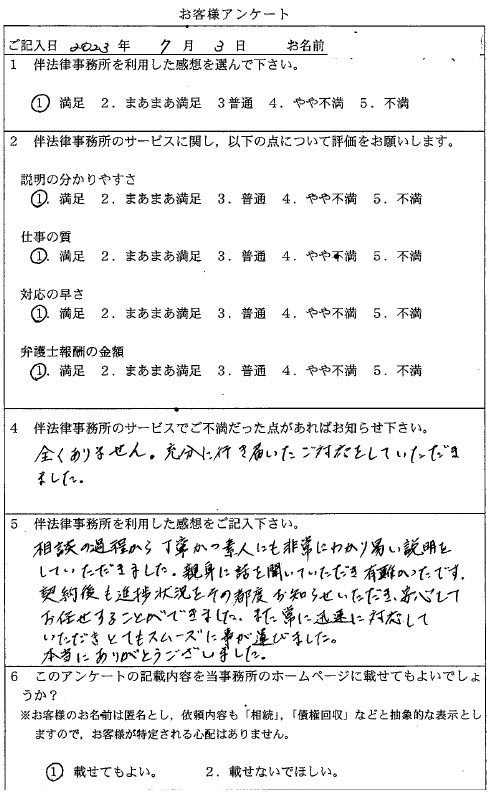 お客様アンケート
ご記入日 2023 年 7 月 3 日 お名前
1 伴法律事務所を利用した感想を選んで下さい。
① 満足 2．まあまあ満足 3 普通 4．やや不満 5．不満
2 伴法律事務所のサービスに関し，以下の点について評価をお願いします。
説明の分かりやすさ
①．満足 2．まあまあ満足 3．普通 4．やや不満 5．不満
仕事の質
①．満足 2．まあまあ満足 3．普通 4．やや不満 5．不満
対応の早さ
①．満足 2．まあまあ満足 3．普通 4．やや不満 5．不満
弁護士報酬の金額
①．満足 2．まあまあ満足 3．普通 4．やや不満 5．不満
4 伴法律事務所のサービスでご不満だった点があればお知らせ下さい。
全くありません。充分に行き届いたご対応をしていただき
ました。
5 伴法律事務所を利用した感想をご記入下さい。
相談の過程から丁寧かつ素人にも非常にわかり易い説明を
していただきました。親身に話を聞いていただき有難かったです。
契約後も進捗状況をその都度お知らせいただき、安心して
お任せすることができました。また常に迅速に対応して
いただきとてもスムーズに事が運びました。
本当にありがとうございました。
6 このアンケートの記載内容を当事務所のホームページに載せてもよいでしょ
うか？
※お客様のお名前は匿名とし，依頼内容も「相続」，「債権回収」などと抽象的な表示とし
ますので，お客様が特定される心配はありません。
① 載せてもよい。 2．載せないでほしい。